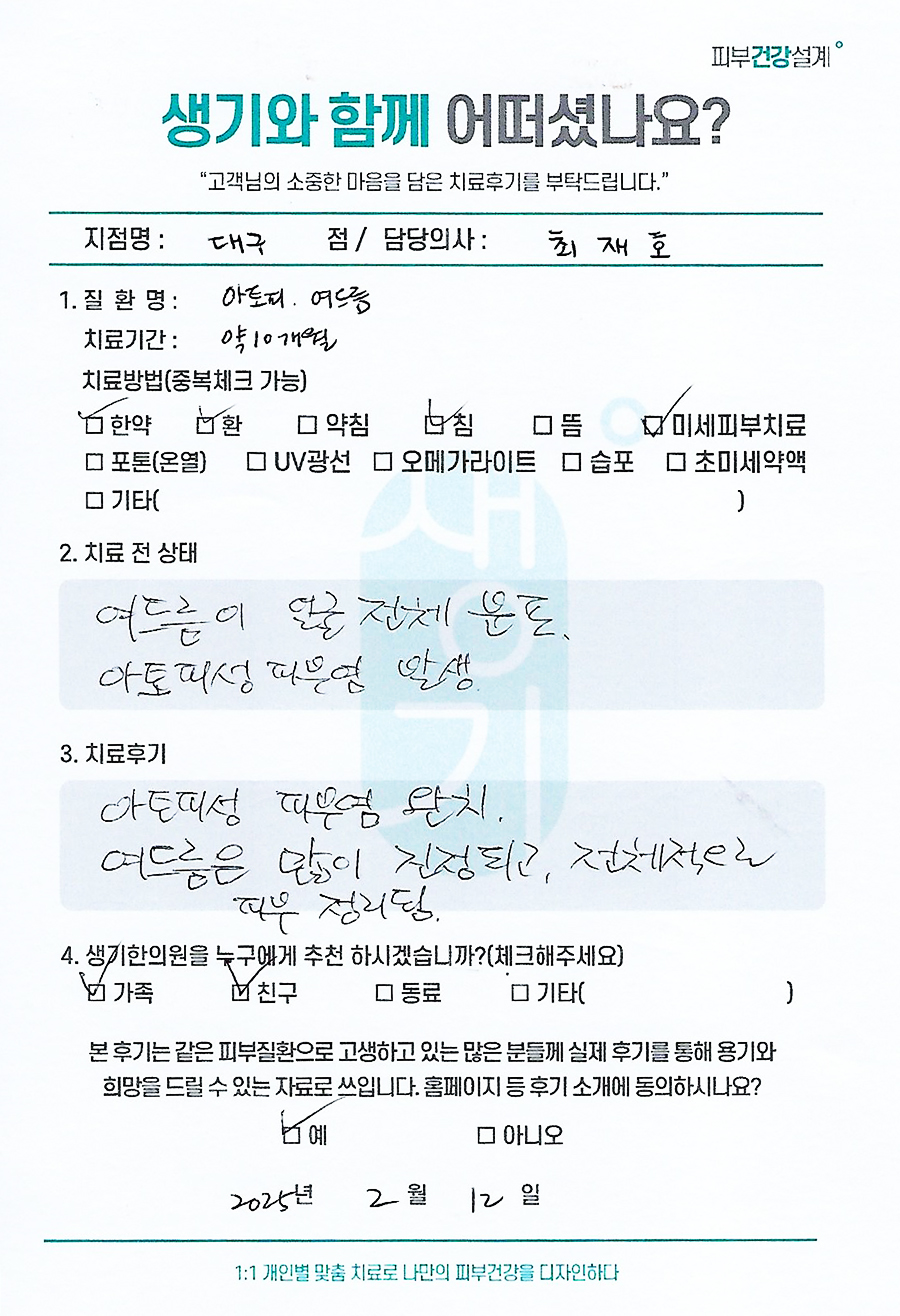 피부건강설계
생기와 함께 어떠셨나요?
“고객님의 소중한 마음을 담은 치료후기를 부탁드립니다.”
지점명 : 대구 점 / 담당의사 : 최재호
1. 질 환 명 : 아토피. 여드름
치료기간 : 약 10개월
치료방법(중복체크 가능)
☑ 한약 ☑ 환 □ 약침 ☑ 침 □ 뜸 ☑ 미세피부치료
□ 포톤(온열) □ UV광선 □ 오메가라이트 □ 습포 □ 초미세약액
□ 기타( )
2. 치료 전 상태
여드름이 얼굴 전체 분포.
아토피성 피부염 발생.
3. 치료후기
아토피성 피부염 완치.
여드름은 많이 진정되고, 전체적으로
피부 정리됨.
4. 생기한의원을 누구에게 추천 하시겠습니까?(체크해주세요)
☑ 가족 ☑ 친구 □ 동료 □ 기타( )
본 후기는 같은 피부질환으로 고생하고 있는 많은 분들께 실제 후기를 통해 용기와
희망을 드릴 수 있는 자료로 쓰입니다. 홈페이지 등 후기 소개에 동의하시나요?
☑ 예 □ 아니오
2025년 2월 12일
1:1 개인별 맞춤 치료로 나만의 피부건강을 디자인하다
생기